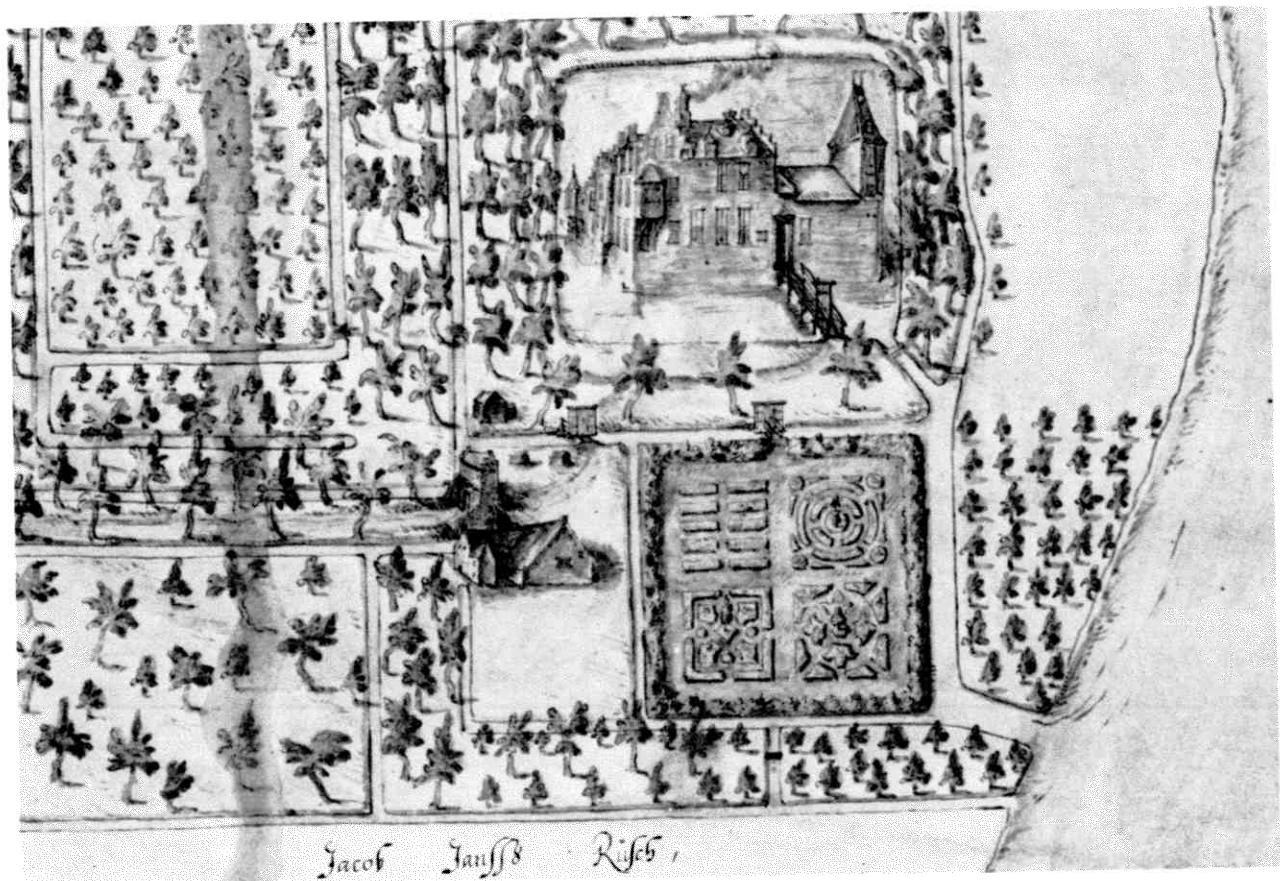 Jacob Janssz Rüsch,